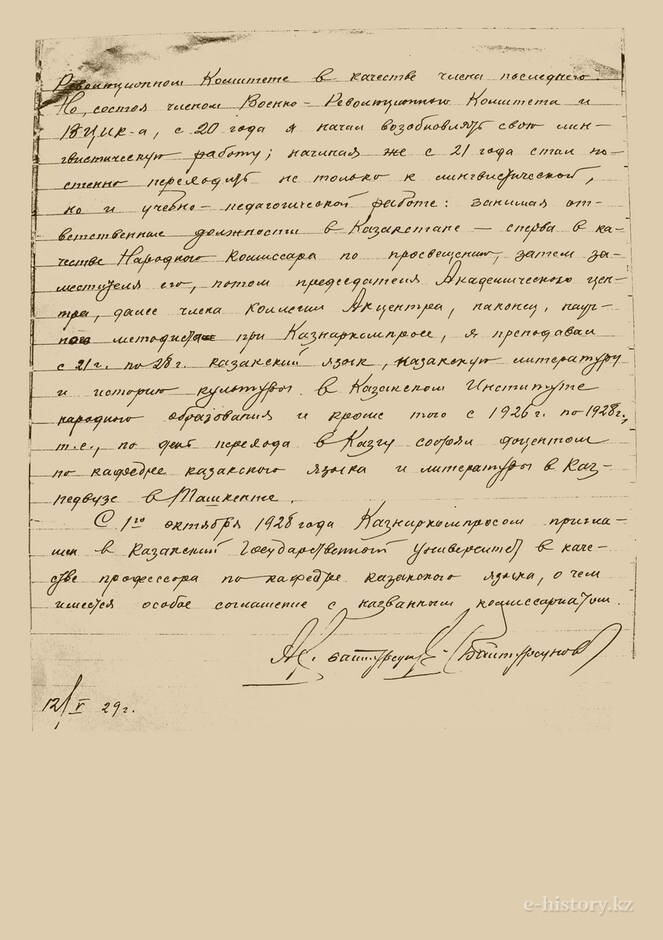 Революционном Комитете в качестве члена последнего.
Но, состоя членом Военно-Революционного Комитета и
ВЦИК-а, с 20 года я начал возобновлять свою лин-
гвистическую работу; начиная же с 21 года стал по-
стенно переходить не только к лингвистической,
но и учебно-педагогической работе: занимая от-
ветственные должности в Казакстане — сперва в ка-
честве Народного Комиссара по просвещению, затем за-
местителя его, потом председателя Академического цен-
тра, далее члена коллегии Акцентра, наконец, науч-
ного методиста при Казнаркомпросе, я преподавал
с 21 г. по 28 г. казакский язык, казакскую литературу
и историю культуры в Казакском Институте
народного образования и кроме того с 1926 г. по 1928 г.,
т.е., по день перехода в КазГУ состоял доцентом
по кафедре казакского языка и литературы в Каз-
педвузе в Ташкенте.
С 1го октября 1928 года Казнаркомпросом пригла-
шен в Казакский Государственный Университет в каче-
стве профессора по кафедре казакского языка, о чем
имеется особое соглашение с названным комиссариатом.
(Байтурсунов)
12/V 29 г.
e-history.kz